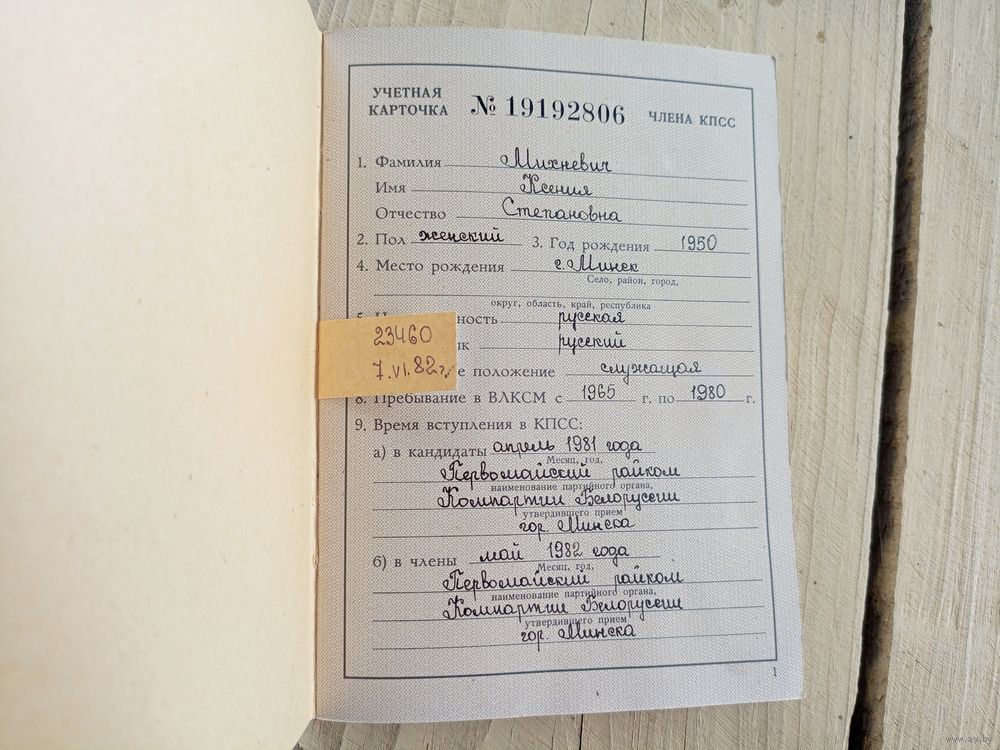 УЧЕТНАЯ
КАРТОЧКА № 19192806 ЧЛЕНА КПСС
1. Фамилия Михневич
Имя Ксения
Отчество Степановна
2. Пол женский 3. Год рождения 1950
4. Место рождения г. Минск
Село, район, город,
округ, область, край, республика
ность русская
23460
к русский
7.VI.82г.
е положение служащая
8. Пребывание в ВЛКСМ с 1965 г. по 1980 г.
9. Время вступления в КПСС:
а) в кандидаты апрель 1981 года
Месяц, год,
Первомайский райком
наименование партийного органа,
Компартии Белоруссии
утвердившего прием
гор. Минска
б) в члены май 1982 года
Месяц, год,
Первомайский райком
наименование партийного органа,
Компартии Белоруссии
утвердившего прием
гор. Минска
1
www.ay.by